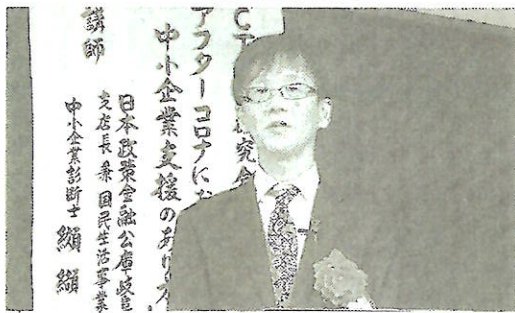 CT 究会
アフターコロナにお
中小企業支援のあり方
講師
日本政策金融公庫岐阜
支店長兼 国民生活事業
中小企業診断士 纐纈